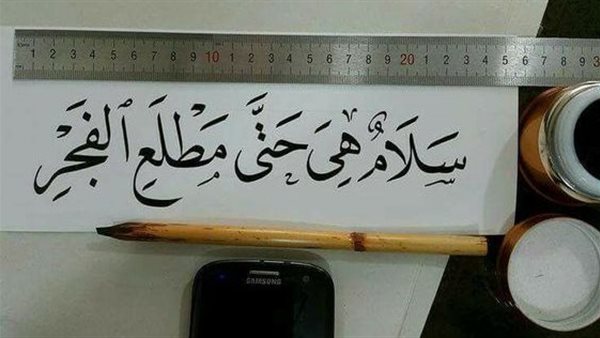 cm 1 2 3 4 5 6 7 8 9 10 1 2 3 4 5 6 7 8 9 20 1 2 3 4 5 6 7 8 9 3
سَلَامٌ هِيَ حَتَّى مَطْلَعِ ٱلْفَجْرِ
SAMSUNG